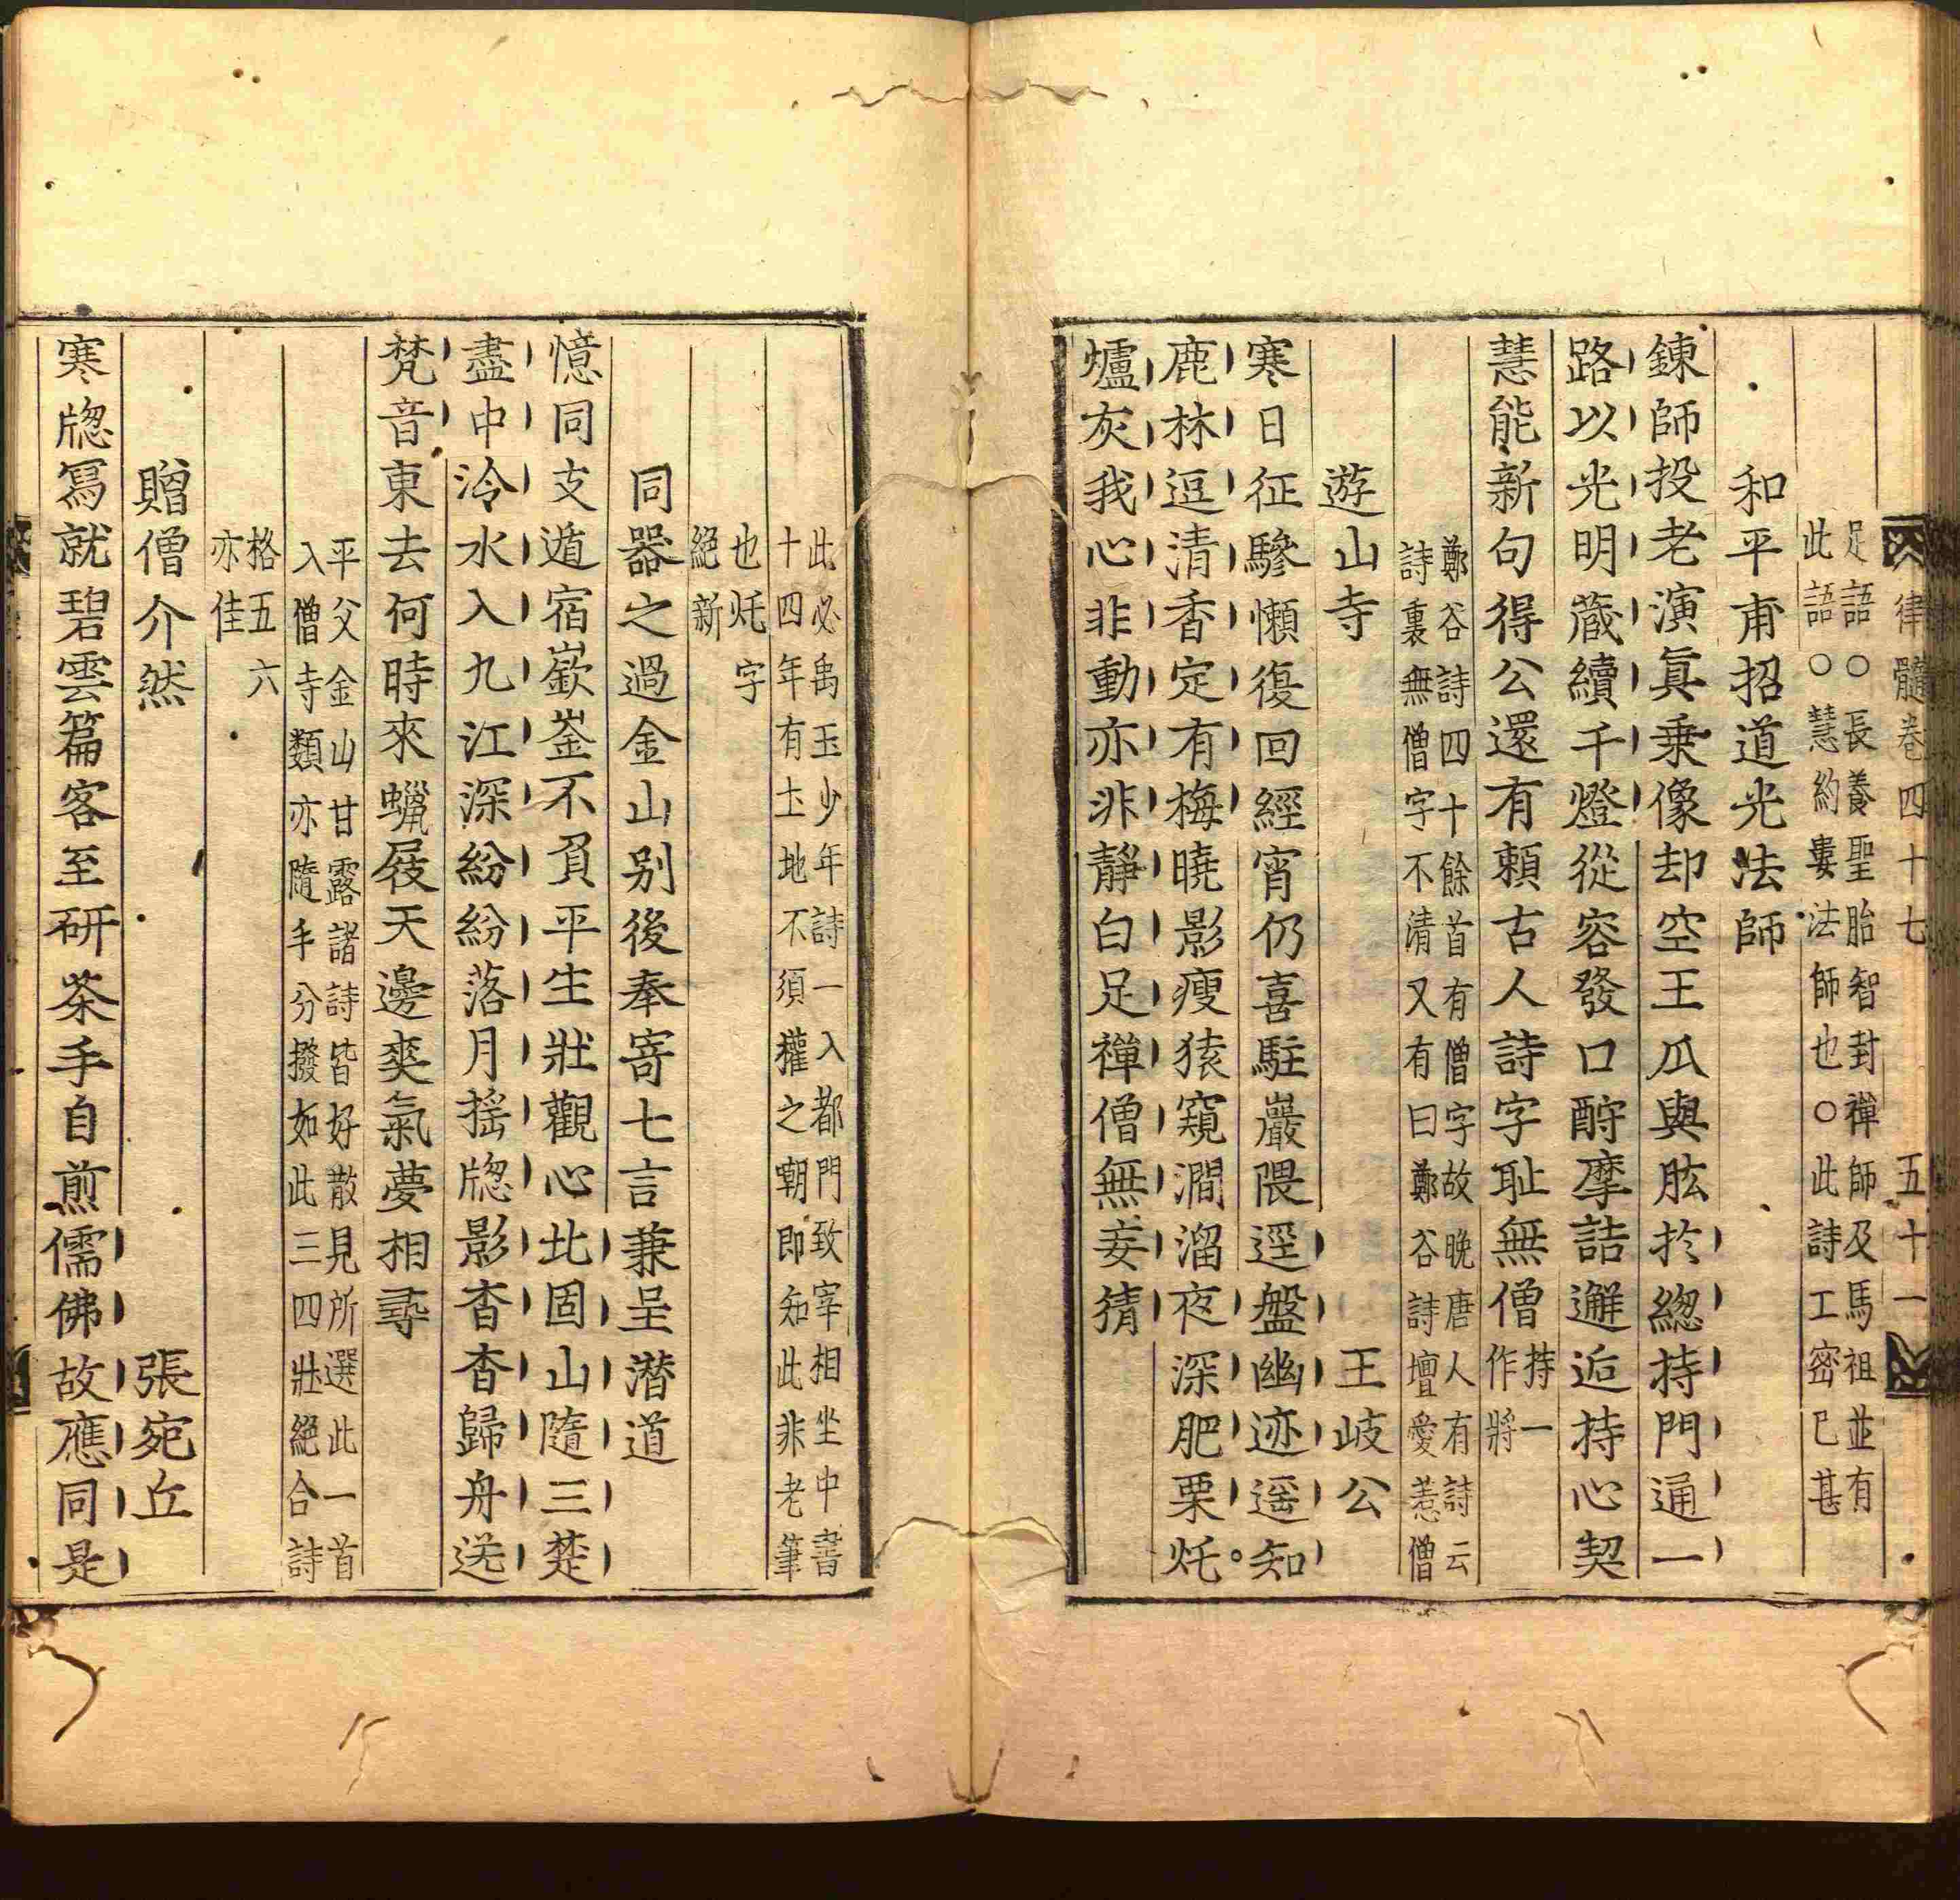 律髓卷四十七 五十一
足語○長養聖胎智封禪師及馬祖並有
此語○慧約婁法師也○此詩工密已甚
和平甫招道光法師
鍊師投老演眞乗像却空王瓜與肱於緫持門通一
路以光明蔵續千燈從容發口酧摩詰邂逅持心契
慧能新句得公還有賴古人詩字耻無僧持一作將
鄭谷詩四十餘首有僧字故晚唐人有詩云
詩裏無僧字不清又有曰鄭谷詩壇愛惹僧
遊山寺 王岐公
寒日征驂懶復回經宵仍喜駐巖隈逕盤幽迹遥知
鹿林逗清香定有梅曉影瘦猿窺澗溜夜深肥栗灹
爐灰我心非動亦非靜白足禪僧無妄猜
此必禹玉少年詩一入都門致宰相坐中書
十四年有土地不須權之嘲即知此非老筆
也灹字
絕新
同器之過金山别後奉寄七言兼呈潜道
憶同支遁宿嶔崟不負平生壯觀心北固山隨三楚
盡中泠水入九江深紛紛落月揺牎影杳杳歸舟送
梵音東去何時來蠟屐天邊爽氣夢相尋
平父金山甘露諸詩皆好散見所選此一首
入僧寺類亦隨手分撥如此三四壯絕合詩
格五六
亦佳
贈僧介然 張宛丘
寒牎冩就碧雲篇客至研茶手自煎儒佛故應同是